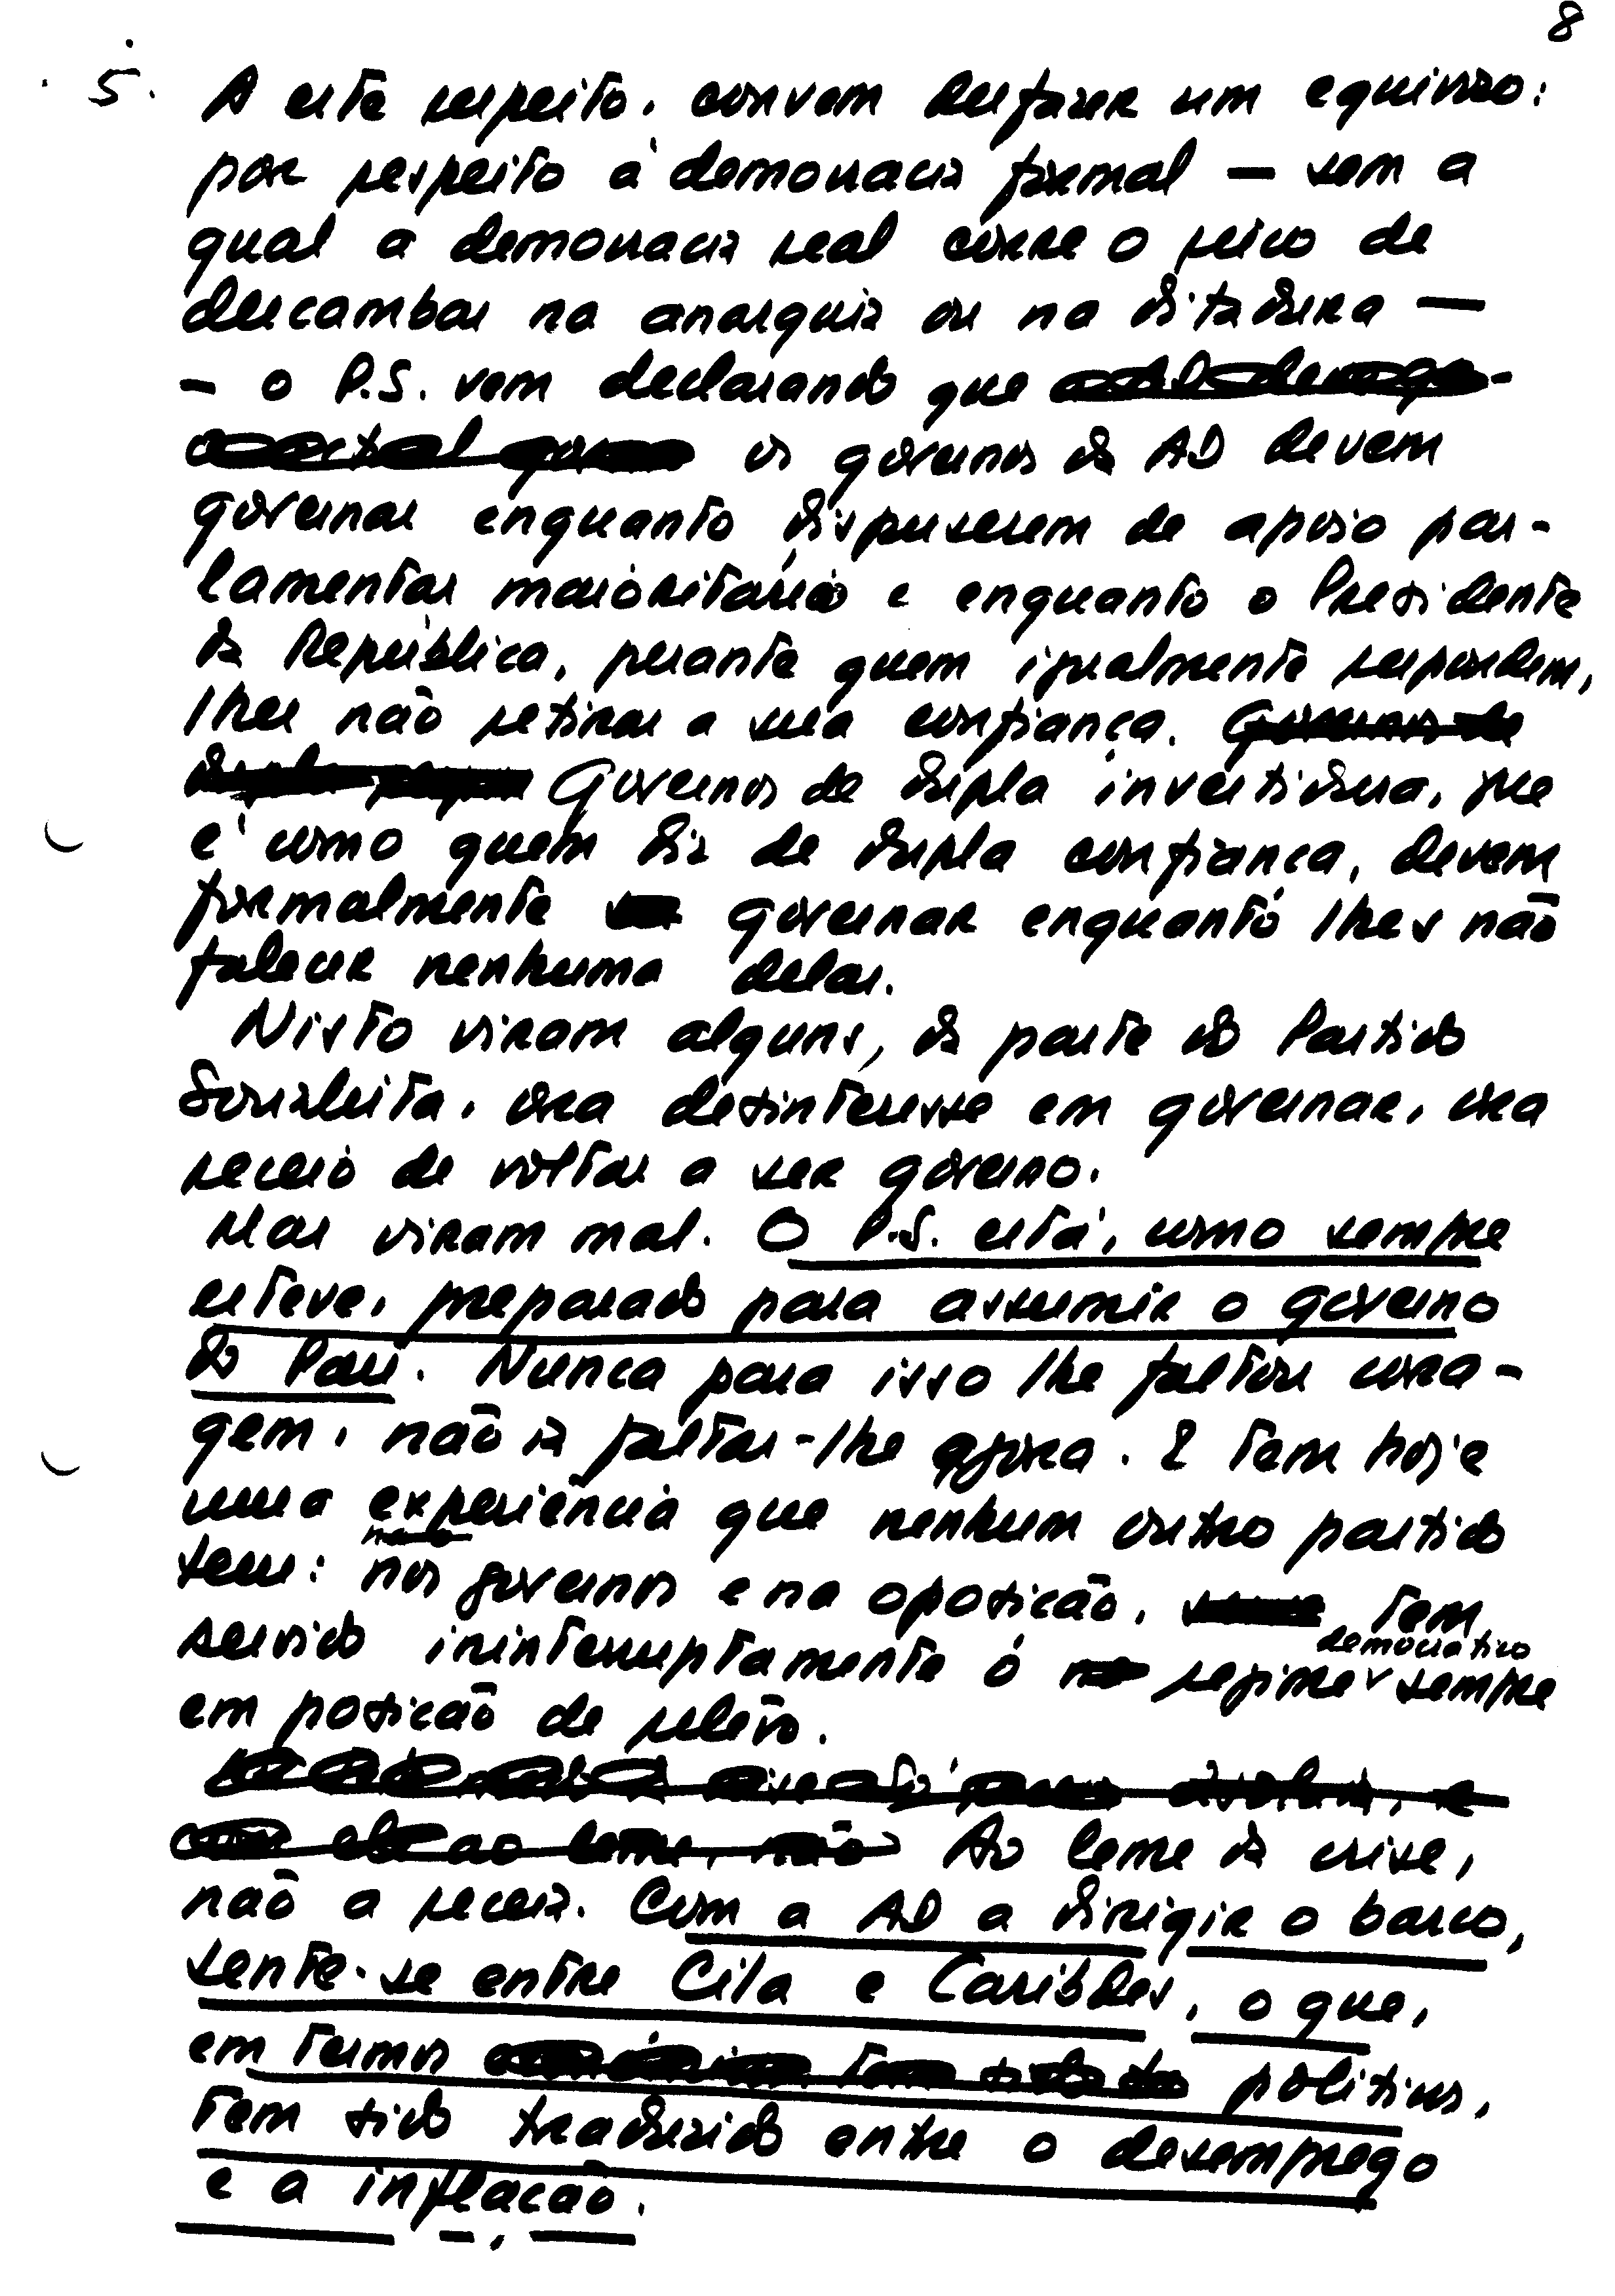 8
5. A este respeito, convem desfazer um equívoco:
por respeito à democracia formal — sem a
qual a democracia real corre o risco de
descambar na anarquia ou na ditadura —
— o P.S. vem declarando que
os governos da AD devem
governar enquanto dispuserem de apoio par-
lamentar maioritário e enquanto o Presidente
da República, perante quem igualmente respondem,
lhes não retirar a sua confiança. Governos de
Governos de dupla investidura, que
é como quem diz de dupla confiança, devem
formalmente governar enquanto lhes não
falecer nenhuma delas.
Nisto viram alguns, da parte do Partido
Socialista, ora desinteresse em governar, ora
receio de voltar a ser governo.
Mas viram mal. O P.S. está, como sempre
esteve, preparado para assumir o governo
do País. Nunca para isso lhe faltou cora-
gem, não ia faltar-lhe agora. E tem hoje
uma experiência que nenhum outro partido
tem: nos governos e na oposição, tem
servido ininterruptamente o regime democrático sempre
em posição de relevo.
Ao leme da crise,
não a receia. Com a AD a dirigir o barco,
sente-se entre Cila e Caribdes, o que,
em termos políticos,
tem sido traduzido entre o desemprego
e a inflação.